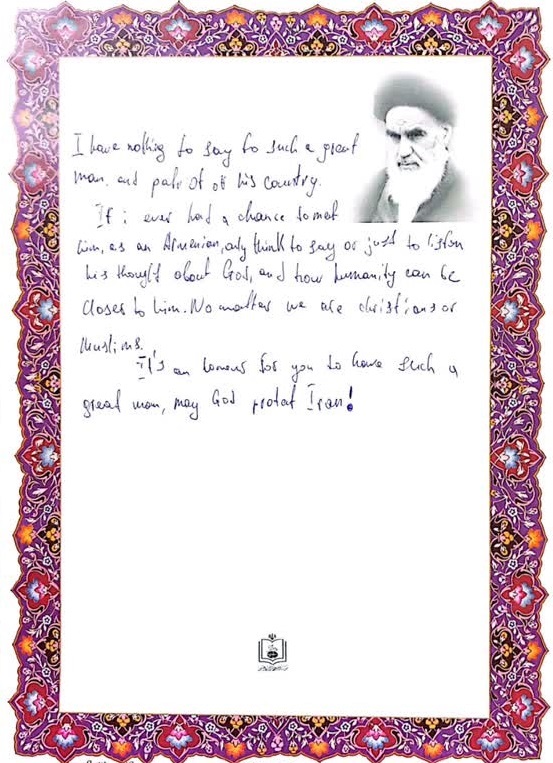 I have nothing to say to such a great
man, and patriot of his country.
If i ever had a chance to met
him, as an Armenian, only think to say or just to listen
his thought about God, and how humanity can be
closer to him. No matter we are christians or
Muslims.
It's an honour for you to have such a
great man, may God protect Iran!